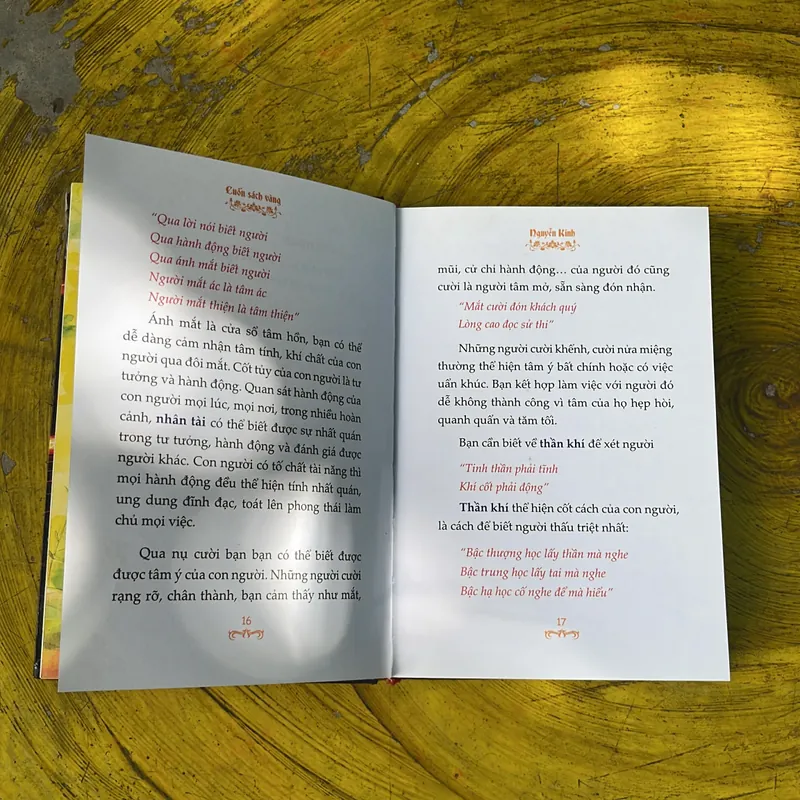 Cuốn sách vàng
"Qua lời nói biết người
Qua hành động biết người
Qua ánh mắt biết người
Người mắt ác là tâm ác
Người mắt thiện là tâm thiện"
Ánh mắt là cửa sổ tâm hồn, bạn có thể
dễ dàng cảm nhận tâm tính, khí chất của con
người qua đôi mắt. Cốt tủy của con người là tư
tưởng và hành động. Quan sát hành động của
con người mọi lúc, mọi nơi, trong nhiều hoàn
cảnh, nhân tài có thể biết được sự nhất quán
trong tư tưởng, hành động và đánh giá được
người khác. Con người có tố chất tài năng thì
mọi hành động đều thể hiện tính nhất quán,
ung dung đĩnh đạc, toát lên phong thái làm
chủ mọi việc.
Qua nụ cười bạn bạn có thể biết được
được tâm ý của con người. Những người cười
rạng rỡ, chân thành, bạn cảm thấy như mắt,
16
Nguyên Kinh
mũi, cử chỉ hành động... của người đó cũng
cười là người tâm mở, sẵn sàng đón nhận.
"Mắt cười đón khách quý
Lòng cao đọc sử thi"
Những người cười khểnh, cười nửa miệng
thường thể hiện tâm ý bất chính hoặc có việc
uẩn khúc. Bạn kết hợp làm việc với người đó
dễ không thành công vì tâm của họ hẹp hòi,
quanh quẩn và tăm tối.
Bạn cần biết về thần khí để xét người
"Tinh thần phải tĩnh
Khí cốt phải động"
Thần khí thể hiện cốt cách của con người,
là cách để biết người thấu triệt nhất:
"Bậc thượng học lấy thần mà nghe
Bậc trung học lấy tai mà nghe
Bậc hạ học cố nghe để mà hiểu"
17